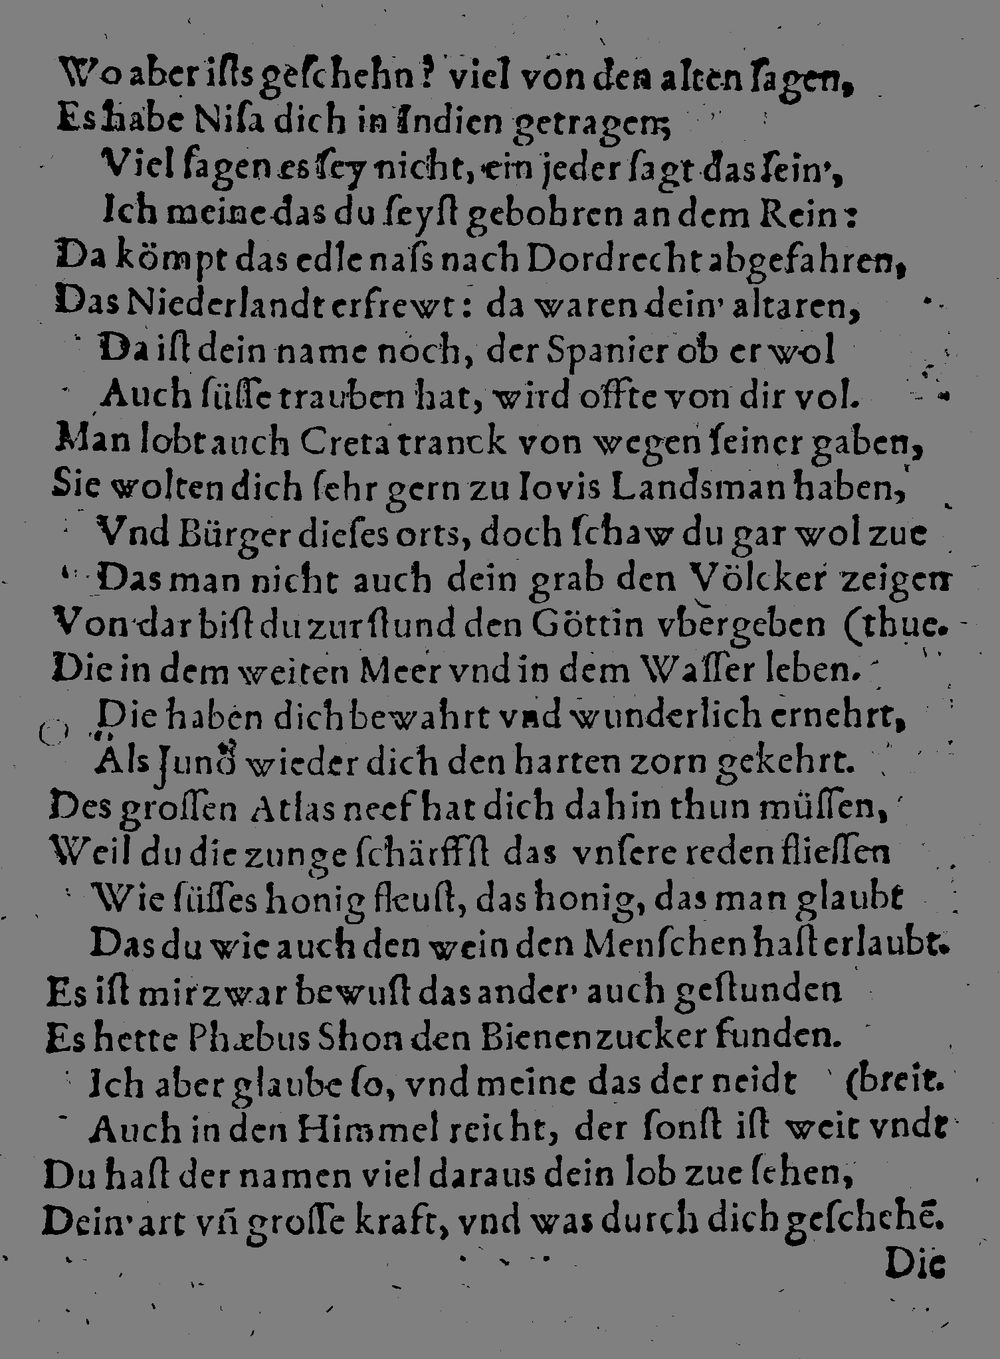 Wo aber iſts geſchehn? viel von den alten ſagen,
Es habe Niſa dich in Indien getragen;
Viel ſagen es ſey nicht, ein jeder ſagt das ſein',
Ich meine das du ſeyſt gebohren an dem Rein:
Da kömpt das edle naſs nach Dordrecht abgefahren,
Das Niederlandt erfrewt: da waren dein' altaren,
Da iſt dein name noch, der Spanier ob er wol
Auch ſüſſe trauben hat, wird offte von dir vol.
Man lobt auch Creta tranck von wegen ſeiner gaben,
Sie wolten dich ſehr gern zu Iovis Landsman haben,
Vnd Bürger dieſes orts, doch ſchaw du gar wol zue
Das man nicht auch dein grab den Völcker zeigen
Von dar biſt du zur ſtund den Göttin vbergeben (thue.
Die in dem weiten Meer vnd in dem Waſſer leben.
Die haben dich bewahrt vnd wunderlich ernehrt,
Als Juno wieder dich den harten zorn gekehrt.
Des groſſen Atlas neef hat dich dahin thun müſſen,
Weil du die zunge ſchärffſt das vnſere reden flieſſen
Wie ſüſſes honig fleuſt, das honig, das man glaubt
Das du wie auch den wein den Menſchen haſt erlaubt.
Es iſt mir zwar bewuſt das ander' auch geſtunden
Es hette Phæbus Shon den Bienen zucker funden.
Ich aber glaube ſo, vnd meine das der neidt (breit.
Auch in den Himmel reicht, der ſonſt iſt weit vndt
Du haſt der namen viel daraus dein lob zue ſehen,
Dein' art vn̄ groſſe kraft, vnd was durch dich geſchehē.
Die